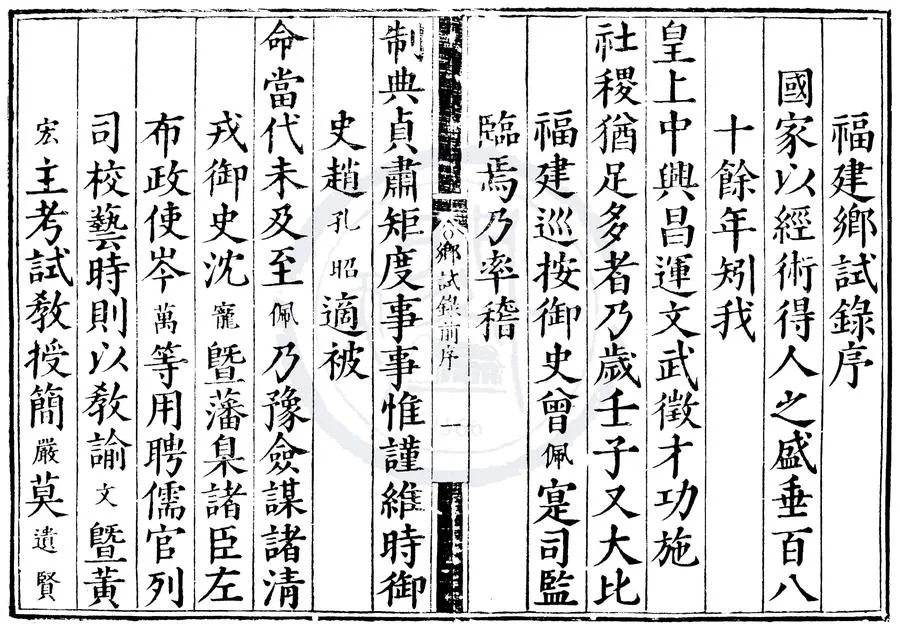 福建鄉試錄序
國家以經術得人之盛垂百八
十餘年矧我
皇上中興昌運文武徵才功施
社稷猶足多者乃歲壬子又大比
福建巡按御史曾佩寔司監
臨焉乃率稽
鄉試錄前序 一
制典貞肅矩度事事惟謹維時御
史趙孔昭適被
命當代未及至佩乃豫僉謀諸清
戎御史沈寵暨藩臬諸臣左
布政使岑萬等用聘儒官列
司校藝時則以教諭文暨黃
宏主考試教授簡嚴莫遺賢